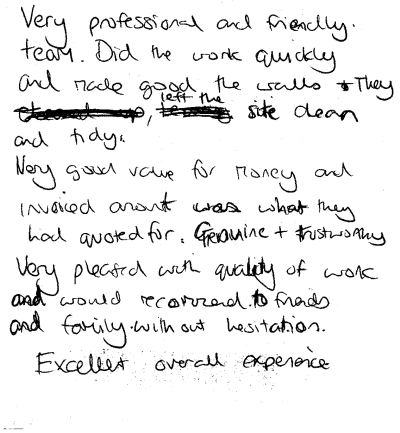 Very professional and friendly.
team. Did the work quickly
and made good the walls + They
left the
site clean
and tidy.
Very good value for money and
invoiced amount was what they
had quoted for. Genuine + trustworthy
Very pleased with quality of work
and would recommend to friends
and family without hesitation.
Excellent overall experience